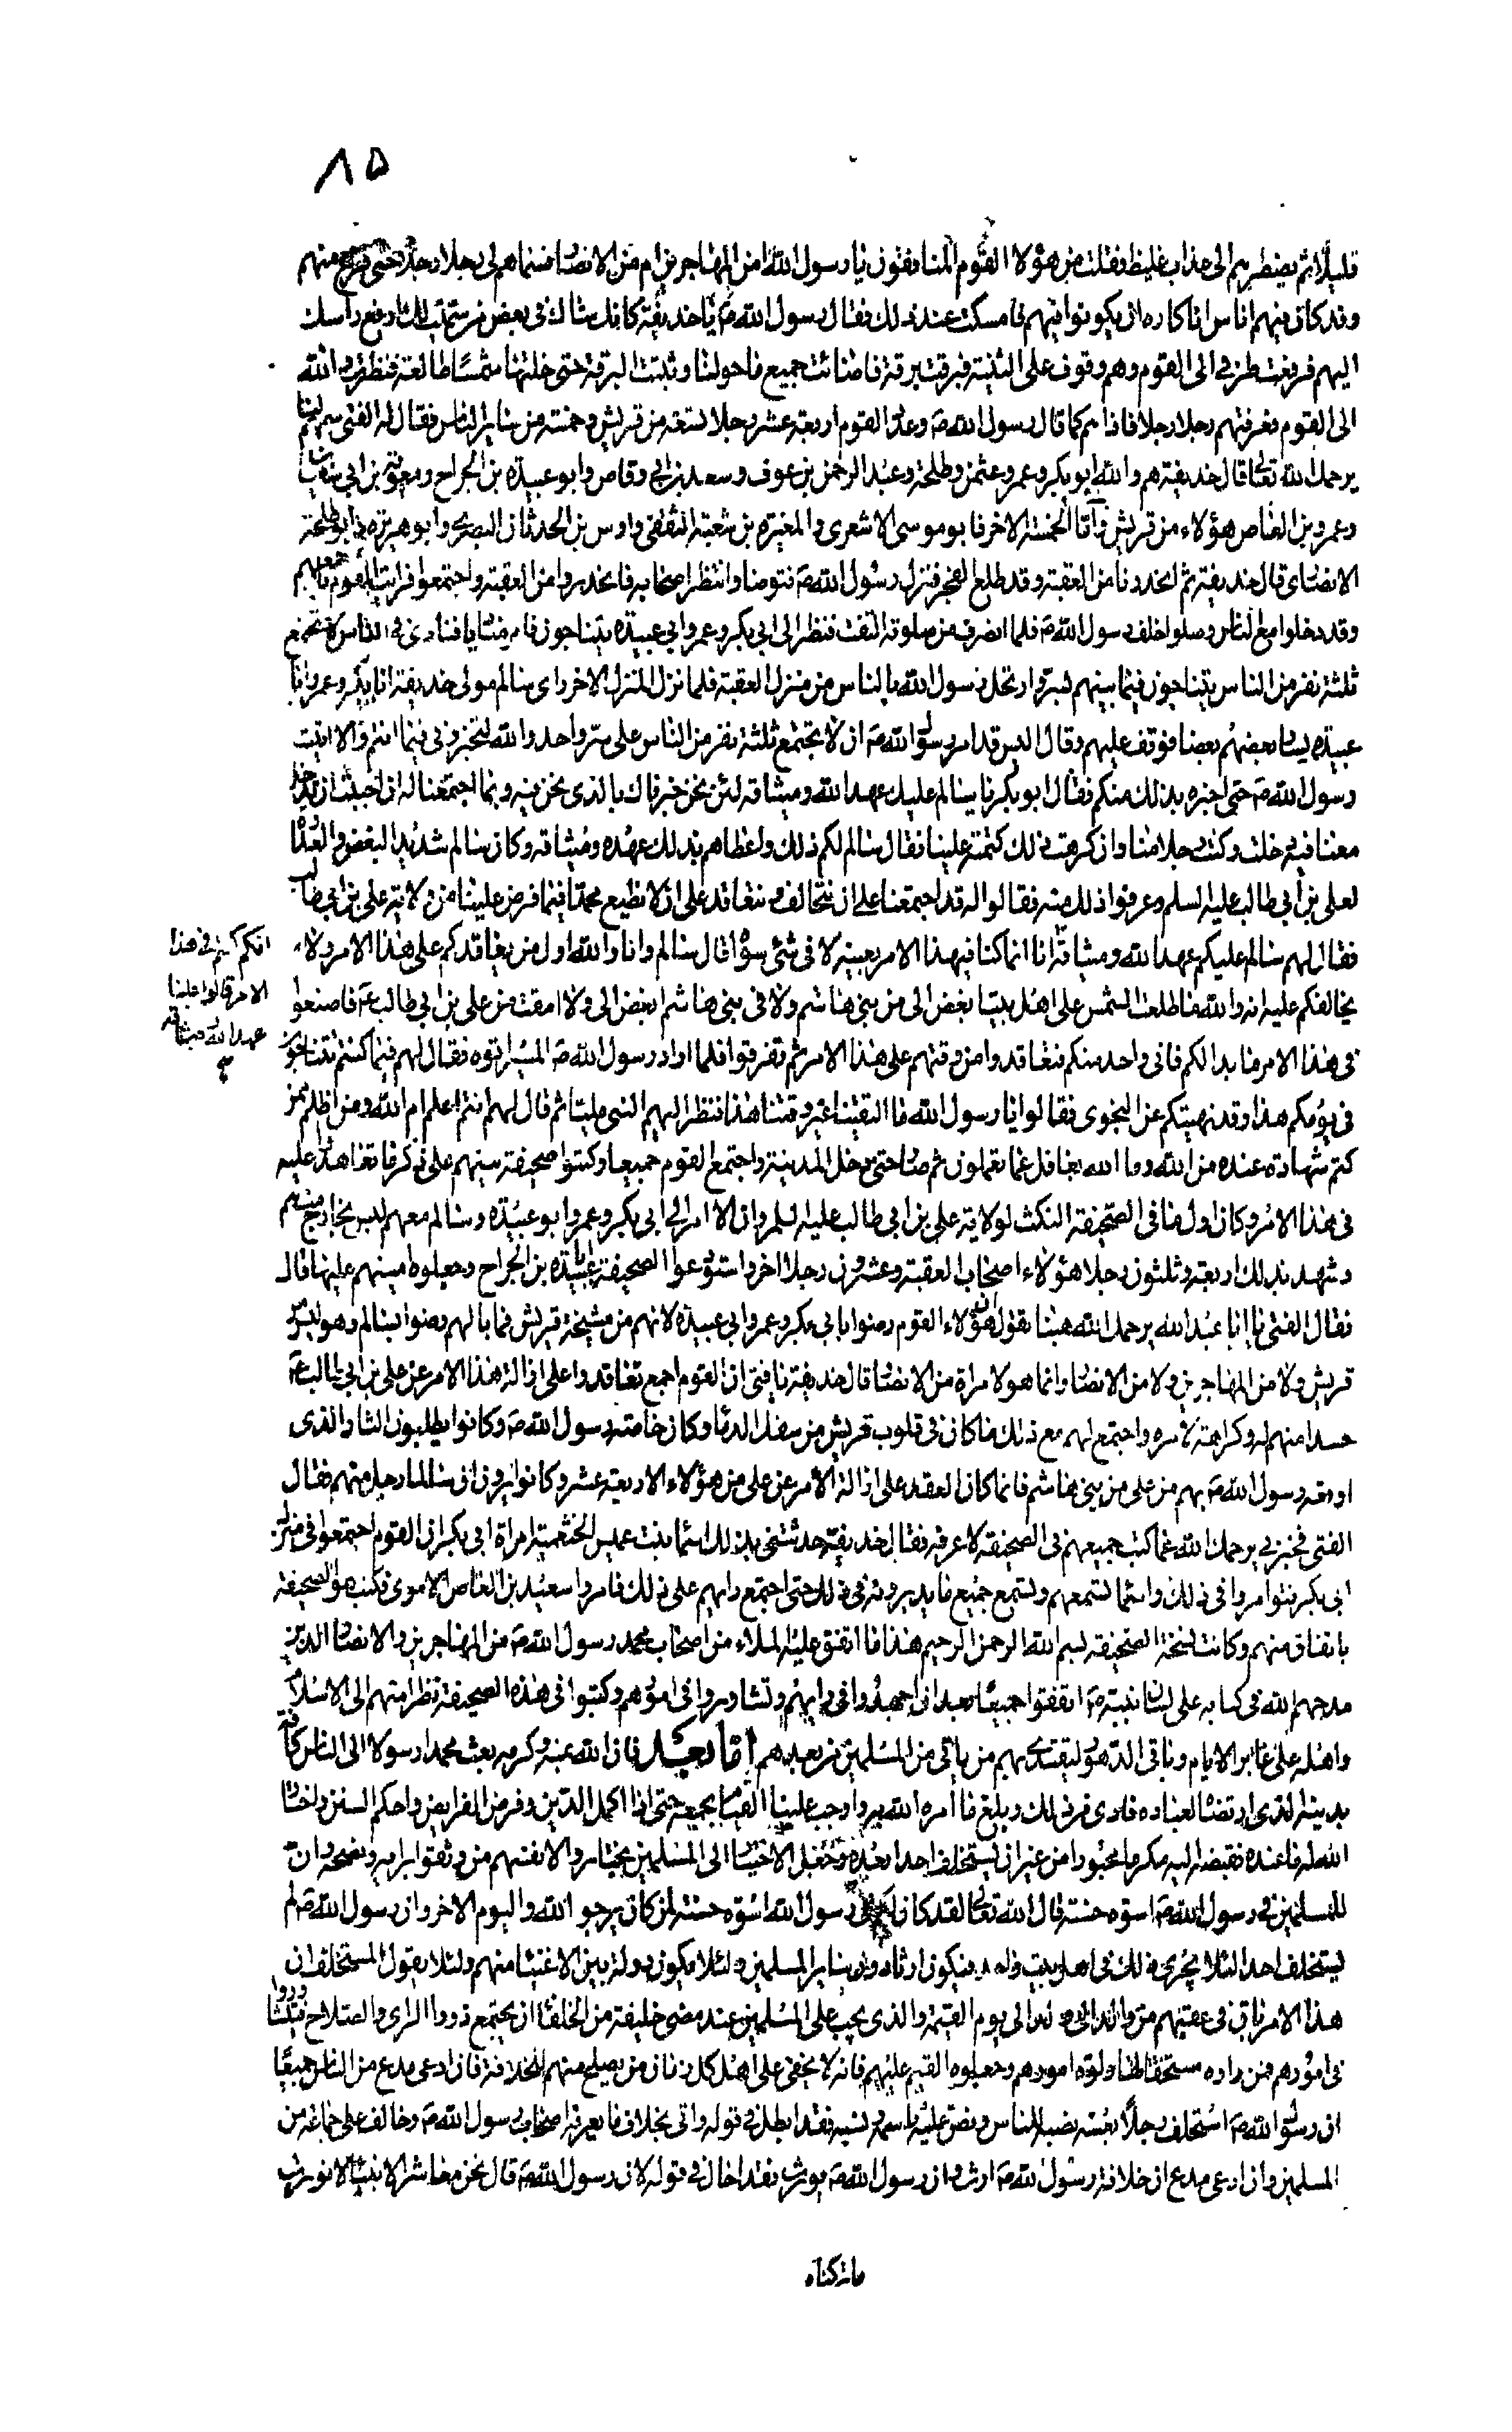 ٨٥
قليلا ثم يضطرهم الى عذاب غليظ فقلت من هؤلاء القوم المنافقون يا رسول الله امن المهاجرين ام من الانصار فسماهم لى رجلا رجلا حتى فرغ منهم
وقد كان فيهم اناس انا كاره ان يكونوا فيهم فامسكت عند ذلك فقال رسول الله ص يا حذيفة كانك شاك فى بعض من سميت لك ارفع راسك
اليهم فرفعت طرفى الى القوم وهم وقوف على الثنية فبرقت برقة فاضائت جميع ما حولنا وثبتت البرقة حتى خلتها شمسا طالعة فنظرت والله
الى القوم فعرفتهم رجلا رجلا فاذا هم كما قال رسول الله ص وعدد القوم اربعة عشر رجلا تسعة من قريش وخمسة من ساير الناس فقال له الفتى سمهم لنا
يرحمك الله تعالى قال حذيفة هم والله ابو بكر وعمر وعثمن وطلحة وعبد الرحمن بن عوف وسعد بن ابى وقاص وابو عبيدة بن الجراح ومعوية بن ابى سفيان
وعمرو بن العاص هؤلاء من قريش واما الخمسة الاخر فابو موسى الاشعرى والمغيرة بن شعبة الثقفى واوس بن الحدثان البصرى وابو هريرة وابو طلحة
الانصارى قال حذيفة ثم انحدرنا من العقبة وقد طلع الفجر فنزل رسول الله ص فتوضا وانتظر اصحابه فانحدروا من العقبة واجتمعوا فرايت القوم باجمعهم
وقد دخلوا مع الناس وصلوا خلف رسول الله ص فلما انصرف من صلوته التفت فنظر الى ابى بكر وعمر وابى عبيدة يتناجون فامر مناديا فنادى فى الناس لا تجتمع
ثلثة نفر من الناس يتناجون فيما بينهم بسر وارتحل رسول الله بالناس من منزل العقبة فلما نزل المنزل الاخر راى سالم مولى حذيفة ابا بكر وعمر وابا
عبيدة يسار بعضهم بعضا فوقف عليهم وقال اليس قد امر رسول الله ص ان لا تجتمع ثلثة نفر من الناس على سر واحد والله لتخبرونى فيما انتم والا اتيت
رسول الله ص حتى اخبره بذلك منكم فقال ابو بكر يا سالم عليك عهد الله وميثاقه لئن نحن خبرناك بالذى نحن فيه وبما اجتمعنا له ان احببت ان تدخل
معنا فيه دخلت وكنت رجلا منا وان كرهت ذلك كتمته علينا فقال سالم لكم ذلك واعطاهم بذلك عهده وميثاقه وكان سالم شديد البغض والعداوة
لعلى بن ابى طالب عليه السلم وعرفوا ذلك منه فقالوا له قد اجتمعنا على ان نتحالف ونتعاقد على ان لا نطيع محمدا فيما فرض علينا من ولاية على بن ابى طالب
فقال لهم سالم عليكم عهد الله وميثاقه انا انما كنا فى هذا الامر بعينه لا فى شئ سواه قال سالم وانا والله اول من يعاقدكم على هذا الامر ولا
يخالفكم عليه انه والله ما طلعت الشمس على اهل بيت ابغض الى من بنى هاشم ولا فى بنى هاشم ابغض الى ولا امقت من على بن ابى طالب ع فاصنعوا
فى هذا الامر ما بدا لكم فانى واحد منكم فتعاقدوا من وقتهم على هذا الامر ثم تفرقوا فلما اراد رسول الله ص المسير اتوه فقال لهم فيما كنتم تتناجون
فى يومكم هذا وقد نهيتكم عن النجوى فقالوا يا رسول الله ما التقينا غير وقتنا هذا فنظر اليهم النبى مليا ثم قال لهم انتم اعلم ام الله ومن اظلم ممن
كتم شهادة عنده من الله وما الله بغافل عما تعملون ثم سار حتى دخل المدينة واجتمع القوم جميعا وكتبوا صحيفة بينهم على ذكر ما تعاهدوا عليه
فى هذا الامر وكان اول ما فى الصحيفة النكث لولاية على بن ابى طالب عليه السلم وان الامر الى ابى بكر وعمر وابو عبيدة وسالم معهم ليس بخارج منهم
وشهد بذلك اربعة وثلثون رجلا هؤلاء اصحاب العقبة وعشرون رجلا اخر واستودعوا الصحيفة ابا عبيدة بن الجراح وجعلوه امينهم عليها قال
فقال الفتى يا ابا عبد الله يرحمك الله هبنا نقول ان هؤلاء القوم رضوا بابى بكر وعمر وابى عبيدة لانهم من مشيخة قريش فما بالهم رضوا بسالم وهو ليس من
قريش ولا من المهاجرين ولا من الانصار وانما هو لامراة من الانصار قال حذيفة يا فتى ان القوم اجمع تعاقدوا على ازالة هذا الامر عن على بن ابى طالب ع
حسدا منهم له وكراهة لامره واجتمع لهم مع ذلك ما كان فى قلوب قريش من سفك الدما وكان خاصة رسول الله ص وكانوا يطلبون الثار الذى
اوقعه رسول الله ص بهم من على من بنى هاشم فانما كان العقد على ازالة الامر عن على من هؤلاء الاربعة عشر وكانوا يرون ان سالما رجل منهم فقال
الفتى فخبرنى يرحمك الله عما كتب جميعهم فى الصحيفة لاعرفه فقال حذيفة حدثتنى بذلك اسما بنت عميس الخثعمية امراة ابى بكر ان القوم اجتمعوا فى منزل
ابى بكر فتوامروا فى ذلك واسما تسمعهم وتسمع جميع ما يدبرونه فى ذلك حتى اجتمع رايهم على ذلك فامروا سعيد بن العاص الاموى فكتب هو الصحيفة
باتفاق منهم وكانت نسخة الصحيفة بسم الله الرحمن الرحيم هذا ما اتفق عليه الملاء من اصحاب محمد رسول الله ص من المهاجرين والانصار الذين
مدحهم الله فى كتابه على لسان نبيه ص اتفقوا جميعا بعد ان اجهدوا فى رايهم وتشاوروا فى امرهم وكتبوا فى هذه الصحيفة نظرا منهم الى الاسلام
واهله على غابر الايام وباقى الدهور ليقتدى بهم من ياتى من المسلمين من بعدهم اما بعد فان الله بمنه وكرمه بعث محمدا رسولا الى الناس كافة
بدينه الذى ارتضاه لعباده فادى من ذلك وبلغ ما امره الله به واوجب علينا القيام بجميعه حتى اذا اكمل الدين وفرض الفرايض واحكم السنن واختار
الله له ما عنده فقبضه اليه مكرما محبورا من غير ان يستخلف احدا بعده وجعل الاختيار الى المسلمين يختاروا لانفسهم من وثقوا برايه ونصحه وان
للمسلمين فى رسول الله ص اسوة حسنة قال الله تعالى لقد كان لكم فى رسول الله اسوة حسنة لمن كان يرجو الله واليوم الاخر وان رسول الله ص لم
يستخلف احدا لئلا يجرى ذلك فى اهل بيت واحد فيكون ارثا دون ساير المسلمين ولئلا يكون دولة بين الاغنيا منهم ولئلا يقول المستخلف ان
هذا الامر باق فى عقبهم من والد الى ولد الى يوم القيمة والذى يجب على المسلمين عند مضى خليفة من الخلفا ان يجتمع ذووا الراى والصلاح فيتشاوروا
فى امورهم فمن راوه مستحقا لها ولوه امورهم وجعلوه القيم عليهم فانه لا يخفى على اهل كل زمان من يصلح منهم للخلافة فان ادعى مدع من الناس جميعا
ان رسول الله ص استخلف رجلا بعينه نصبه للناس ونص عليه باسمه ونسبه فقد ابطل فى قوله واتى بخلاف ما يعرفه اصحاب رسول الله ص وخالف على جماعة من
المسلمين وان ادعى مدع ان خلافة رسول الله ص ارث وان رسول الله ص يورث فقد احال فى قوله لان رسول الله ص قال نحن معاشر الانبيا لا نورث
انكم كنتم فى هذا
الامر قالوا علينا
عهد الله وميثاقه
ما تركناه